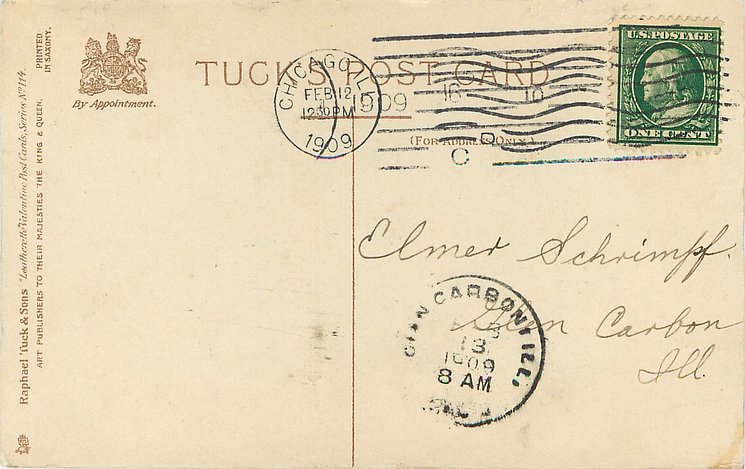 Raphael Tuck & Sons "Leatherette Valentine" Post Cards, Series No 114.
ART PUBLISHERS TO THEIR MAJESTIES THE KING & QUEEN.
PRINTED
IN SAXONY.
By Appointment.
TUCK'S POST CARD
(FOR ADDRESS ONLY.)
CHICAGO, ILL.
FEB 12
1230PM
1909
1909
C
U.S. POSTAGE
ONE CENT
Elmer Schrimpf.
Glen Carbon
Ill.
GLEN CARBON, ILL.
13
1909
8 AM